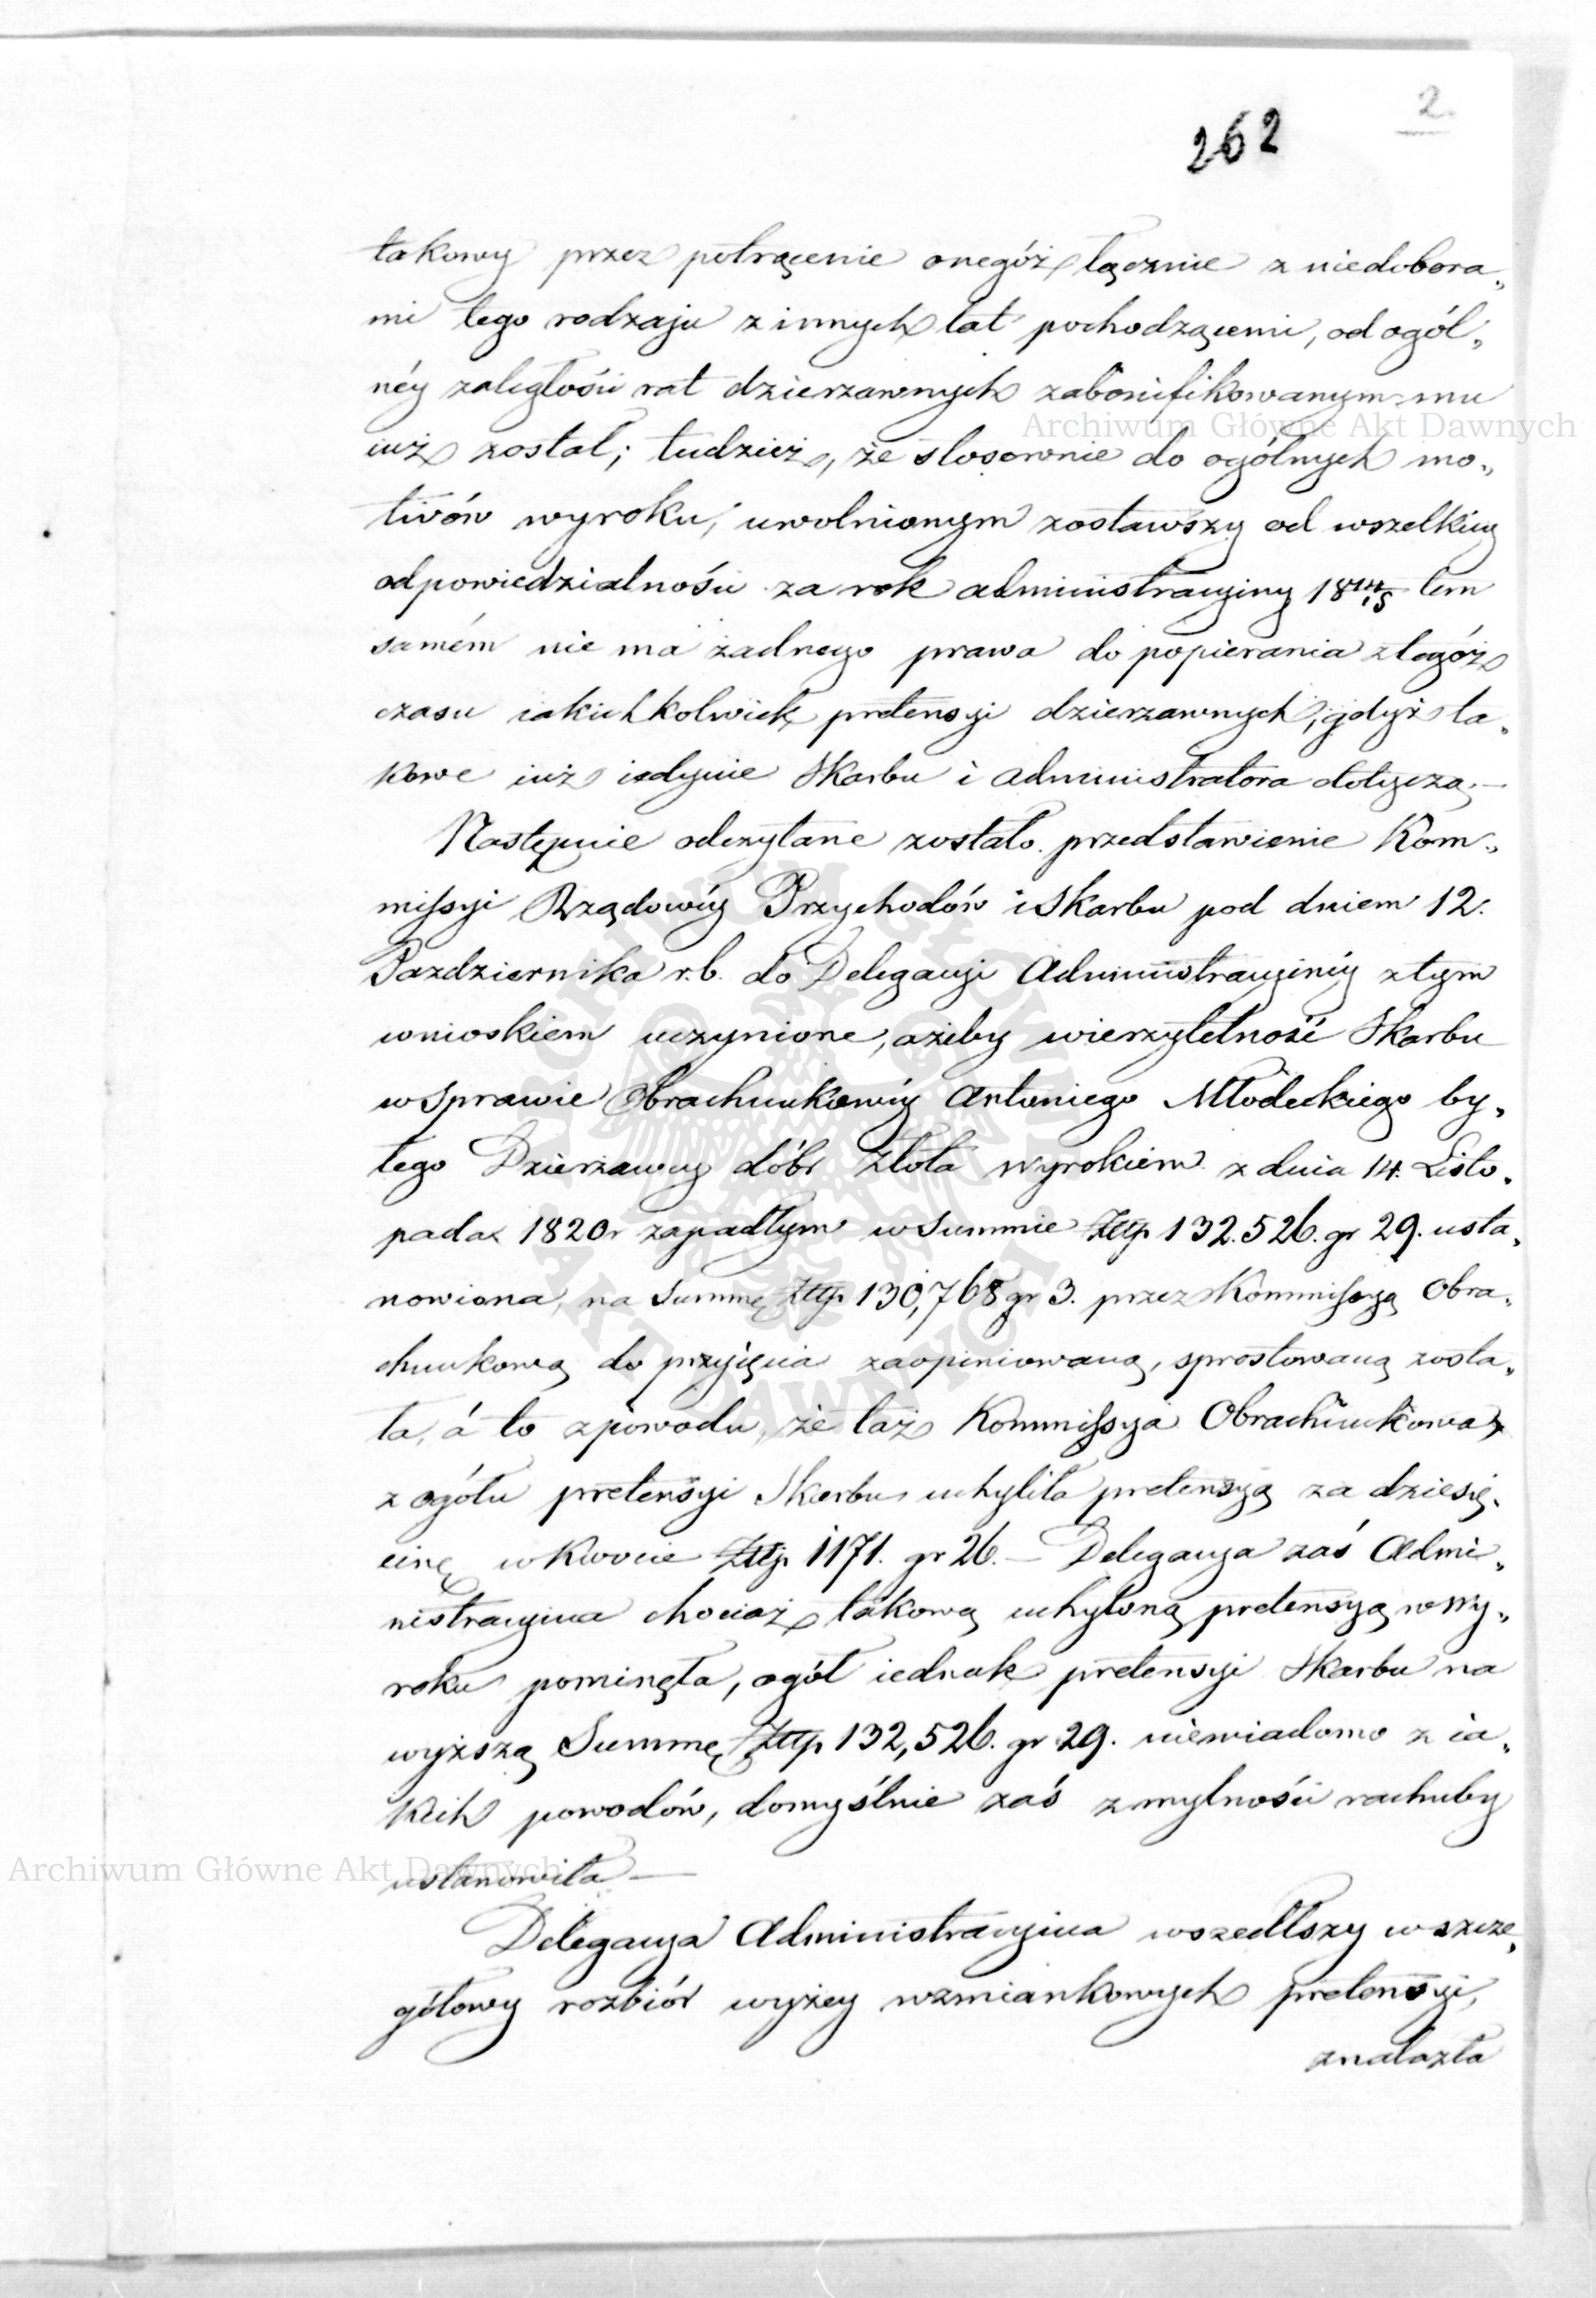 2.
262
takowy przez potrącenie onegóż łącznie z niedobora„
mi tego rodzaju z innych lat pochodzącemi, od ogól„
néy zaległości rat dzierzawnych zabonifikowanym mu
iuż został; tudzież, że stosownie do ogólnych mo„
tivów wyroku, uwolnionym zostawszy od wszelkiey
odpowiedzialności za rok administracyiny 18 14/15 tem
samém nie ma żadnego prawa do popierania z tegóż
czasu iakichkolwiek pretensyi dzierzawnych, gdyż ta„
kowe iuż iedynie Skarbu i administratora dotyczą. —
Następnie odczytane zostało przedstawienie Kom„
missyi Rządowéy Przychodów i Skarbu pod dniem 12.
Pazdziernika r.b. do Delegacyi Administracyinéy z tym
wnioskiem uczynione, ażeby wierzytelność Skarbu
w sprawie Obrachunkowéy Antoniego Młodeckiego by„
łego Dzierzawcy dóbr Złota wyrokiem z dnia 14. Listo„
pada 1820r zapadłym w Summie Złtp 132.526. gr 29. usta„
nowiona, na Summę Złtp 130,768 gr 3. przez Kommissyą Obra„
chunkową do przyięcia zaopiniowaną, sprostowaną zosta„
ła, á to z powodu, że taż Kommissya Obrachunkowa,
z ogółu pretensyi Skarbu uchyliła pretensyą za dziesię„
cinę w kwocie Złtp. 1171. gr 26. — Delegacya zaś Admi„
nistracyina chociaż takową uchyloną pretensyą w Wy„
roku pominęła, ogół iednak pretensyi Skarbu na
wyższą Summę Złtp 132,526. gr 29. niewiadomo z ia„
kich powodów, domyślnie zaś z mylności rachuby
ustanowiła —
Delegacya Administracyina wszedłszy w szcze„
gółowy rozbiór wyżey wzmiankowych pretensyi,
znalazła
Archiwum Główne Akt Dawnych
Archiwum Główne Akt Dawnych
ARCHIWUM GŁÓWNE AKT DAWNYCH